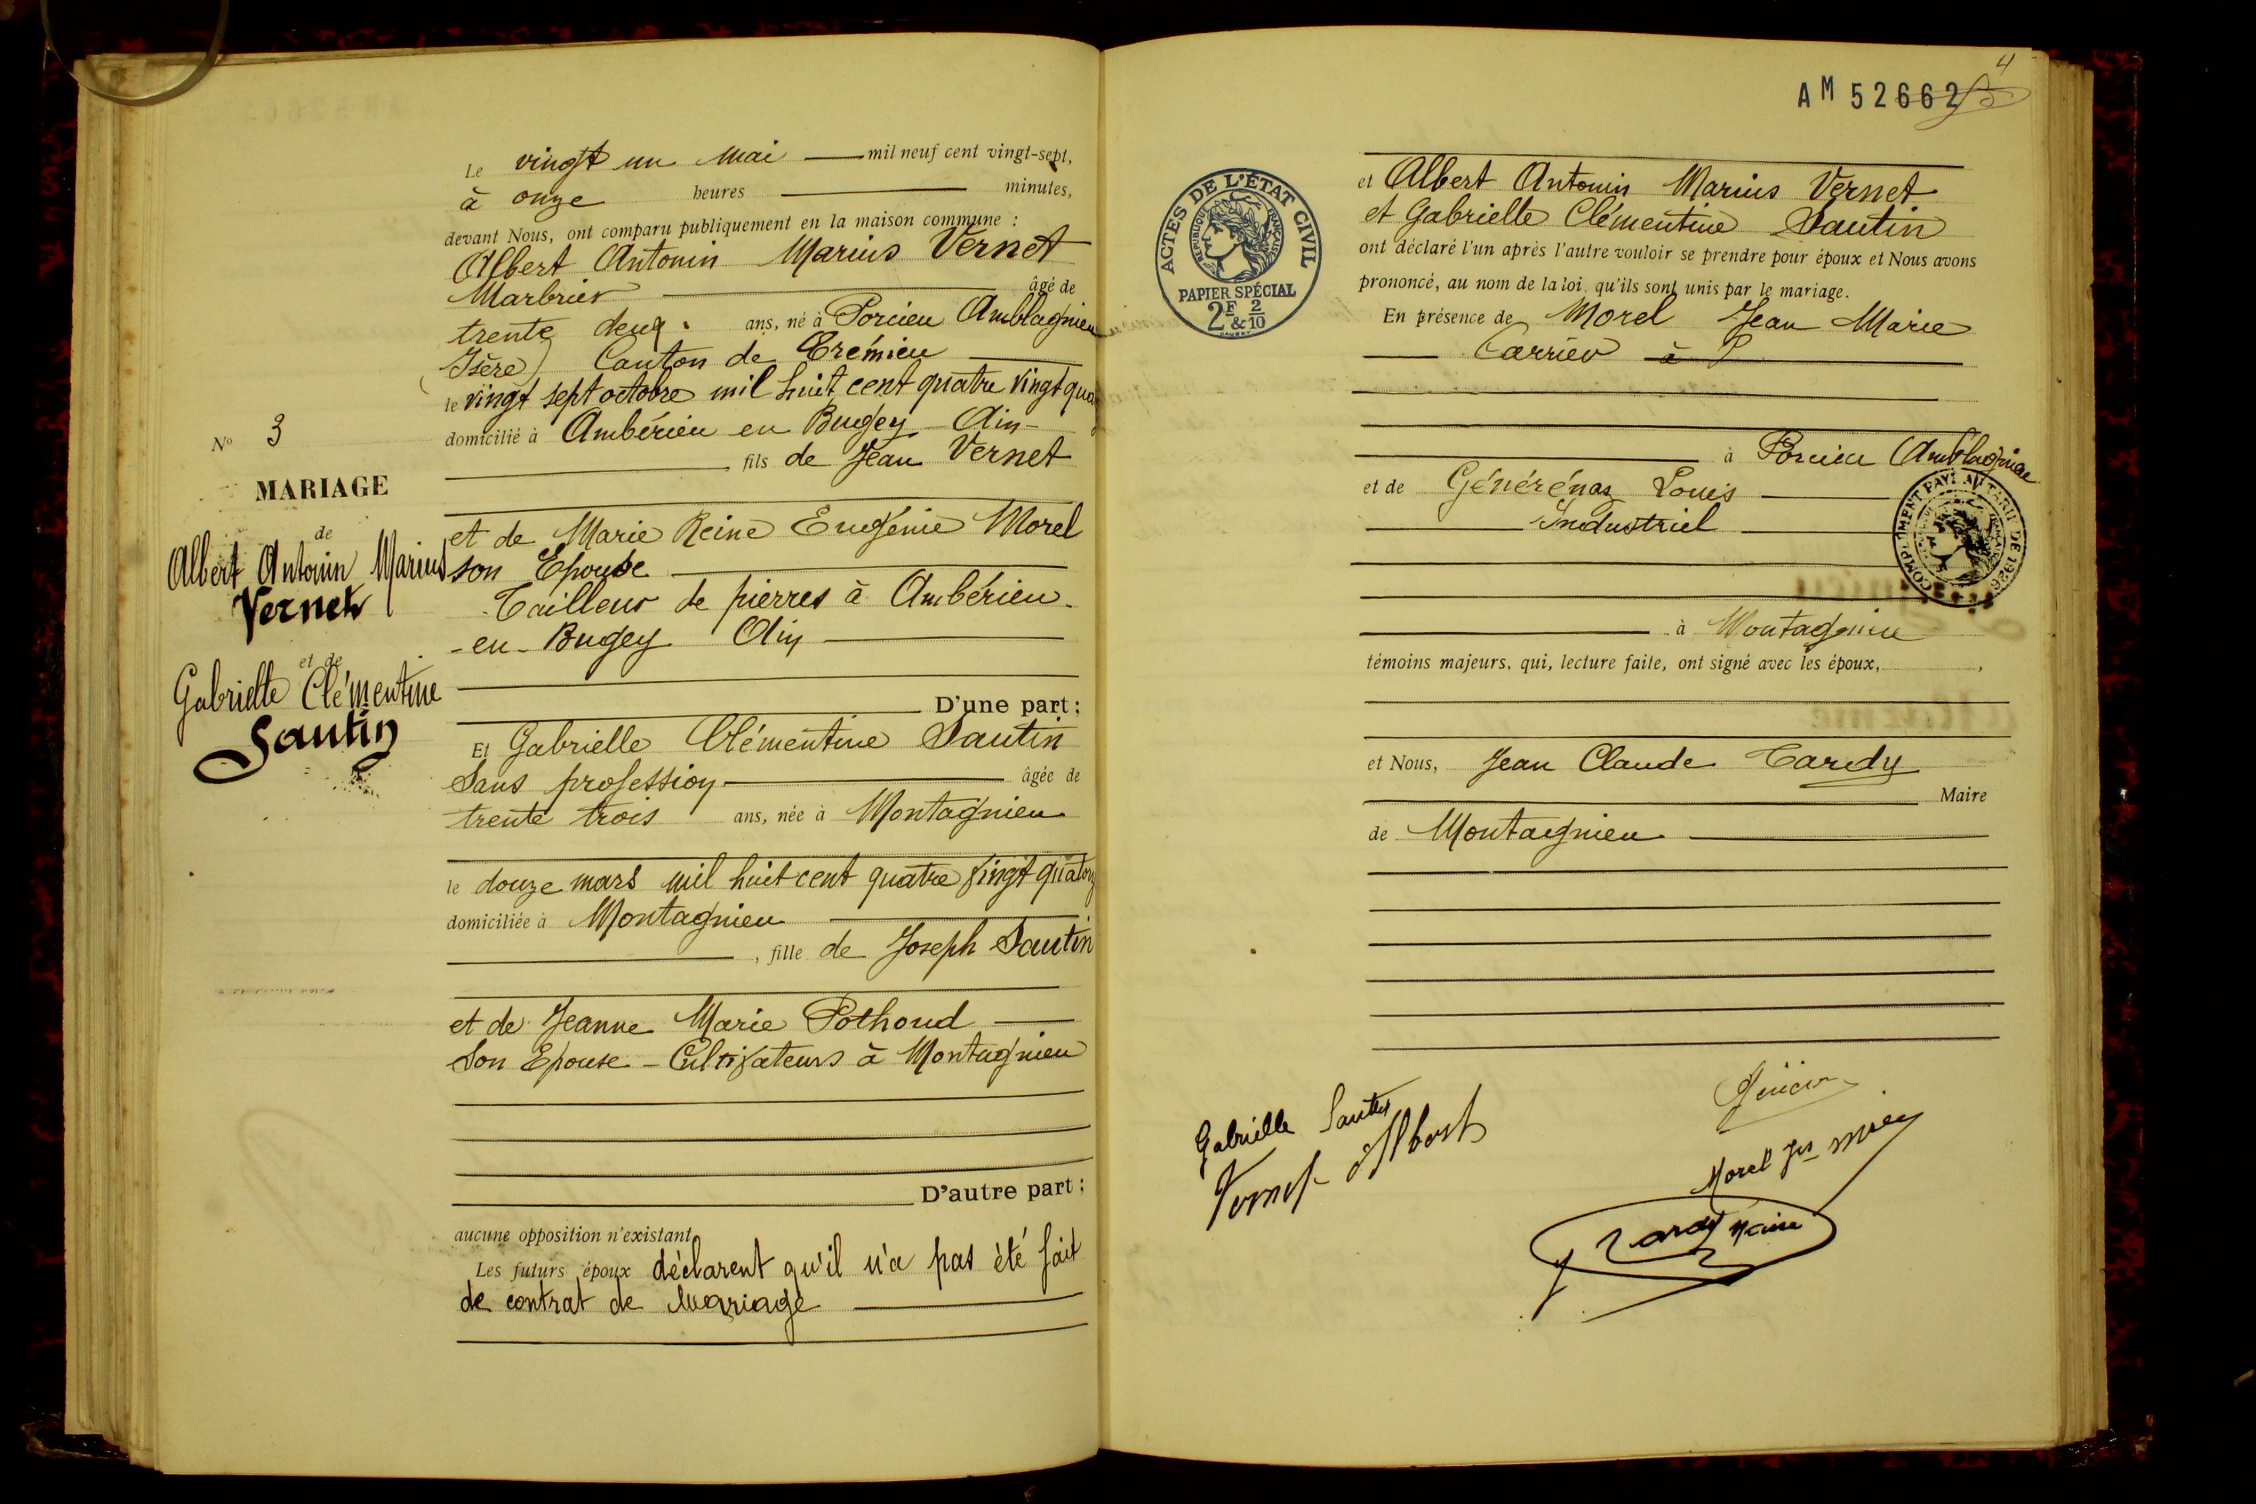 Le vingt un Mai mil neuf cent vingt-sept,
à onze heures minutes,
devant Nous, ont comparu publiquement en la maison commune :
Albert Antonin Marius Vernet
Marbrier âgé de
trente deux ans, né à Porcieu Amblagnieu
(Isère) Canton de Crémieu
le vingt sept octobre mil huit cent quatre vingt qua
domicilié à Ambérieu en Bugey Ain
fils de Jean Vernet
et de Marie Reine Eugénie Morel
son Epouse
Tailleur de pierres à Ambérieu
-en- Bugey Ain
D'une part ;
Et Gabrielle Clémentine Sautin
Sans profession âgée de
trente trois ans, née à Montagnieu
le douze mars mil huit cent quatre vingt quatorz
domiciliée à Montagnieu
, fille de Joseph Sautin
et de Jeanne Marie Pothoud
Son Epouse - Cultivateurs à Montagnieu
D'autre part ;
aucune opposition n'existant
Les futurs époux déclarent qu'il n'a pas été fait
de contrat de Mariage
N° 3
MARIAGE
de
Albert Antonin Marius
Vernet
et de
Gabrielle Clémentine
Sautin
4
AM 52662
ACTES DE L'ÉTAT CIVIL
RÉPUBLIQUE FRANÇAISE
PAPIER SPÉCIAL
2F & 2/10
et Albert Antonin Marius Vernet
et Gabrielle Clémentine Sautin
ont déclaré l'un après l'autre vouloir se prendre pour époux et Nous avons
prononcé, au nom de la loi, qu'ils sont unis par le mariage.
En présence de Morel Jean Marie
Carrier à P
à Porcieu Amblagnieu
et de Générénas Louis
Industriel
COMPLÉMENT PAYÉ AU TARIF DE 1926
à Montagnieu
témoins majeurs, qui, lecture faite, ont signé avec les époux,
et Nous, Jean Claude Tardy
Maire
de Montagnieu
Gabrielle Sautin
Vernet Albert
Morel Jn Marie
Tardy Maire